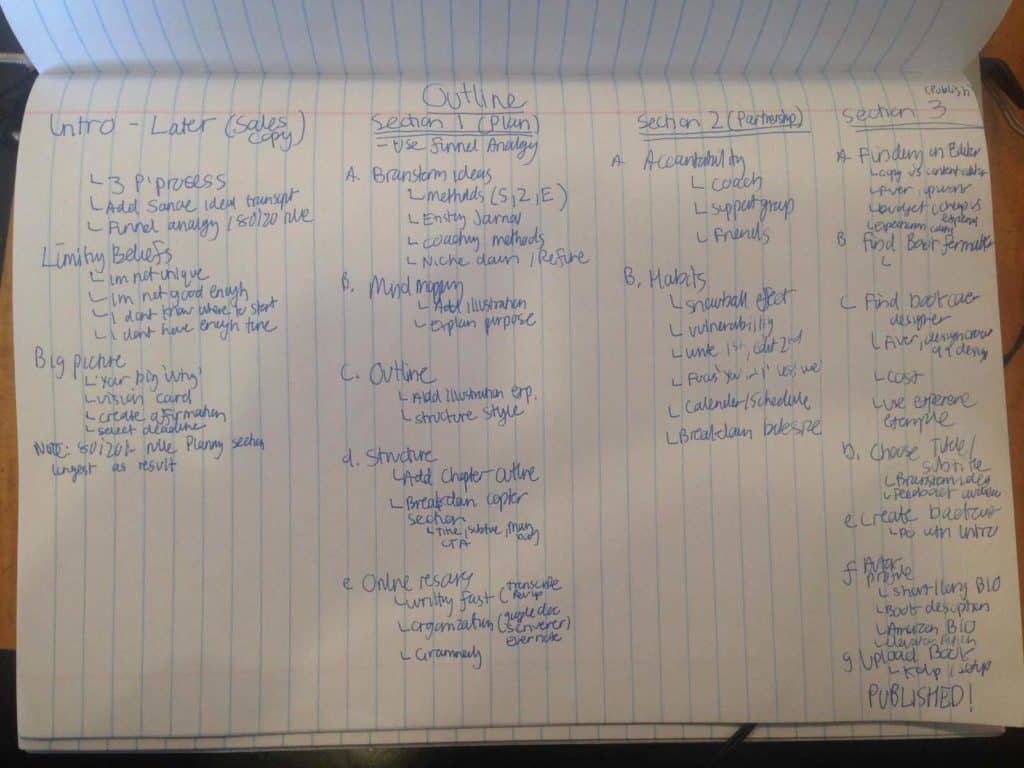 Outline
Intro - Later (Sales
copy)
↳ 3 P's process
↳ Add ideal
↳ Funnel analgy / 80/20 rule
Limiting Beliefs
↳ Im not unique
↳ Im not good enough
↳ I dont know where to start
↳ I dont have enough time
Big picture
↳ Your big 'why'
↳ vision card
↳ create affirmation
↳ select deadline
Note: 80/20% rule Planning section
longest as result
Section 1 (Plan)
- Use Funnel Analgy
A. Branstorm ideas
↳ methods (S, 2, E)
↳ Jarnal
↳ coaching methods
↳ Niche down / Refine
B. Mind mapping
↳ Add illustration
↳ Explan purpose
C. Outline
↳ Add illustration exp.
↳ structure style
d. Structure
↳ Add Chapter outline
↳ Breakdown
section
↳ Title, subtitle, main body
CTA
e Online
↳ writing fast (transcribe
Rev.up
↳ organization (google doc
Scrivener)
Evernote
↳ Grammerly
Section 2 (Partnership)
A. Accountability
↳ coach
↳ support group
↳ Friends
B. Habits
↳ snowball effect
↳ vulnerability
↳ write 1st, edit 2nd
↳ Focus 'You' use we
↳ Calender/Schedule
↳ Breakdown
(Publish)
Section 3
A. Finding an Editor
↳ copy vs content editor
↳ Fiver, upwork
↳ budget (cheap vs
B Find Book formatter
↳
C Find book cover
designer
↳ Fiver,
↳ cost
↳ use
example
D. Choose Title/
subtitle
↳ Branstorm idea
↳ Feedback
e Create
↳ intro
f Autor
profile
↳ short/long BIO
↳ Book desciption
↳ Amazon BIO
↳ elevator pitch
g Upload Book
↳ Kdp / setup
PUBLISHED!